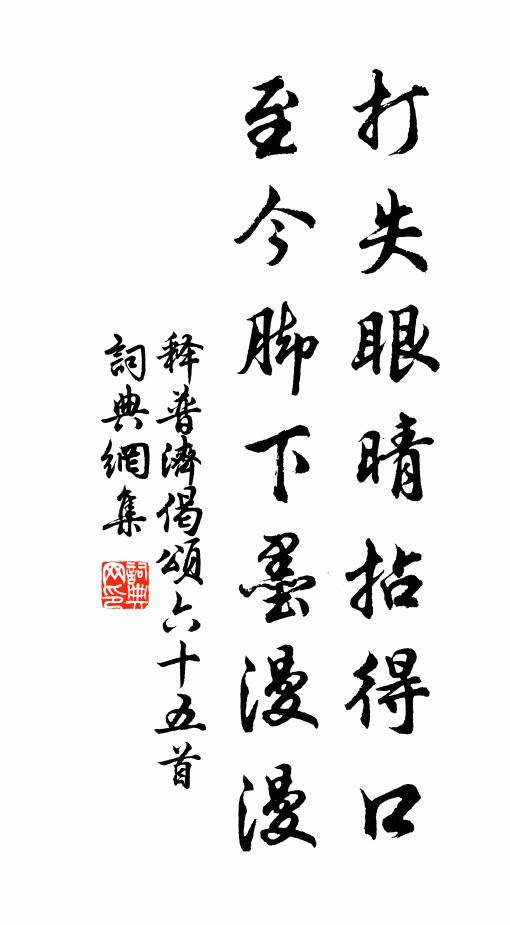 打失眼晴拈得口
至今脚下墨漫漫
释普濟偈頌六十五首
詞典網集
詞典网印